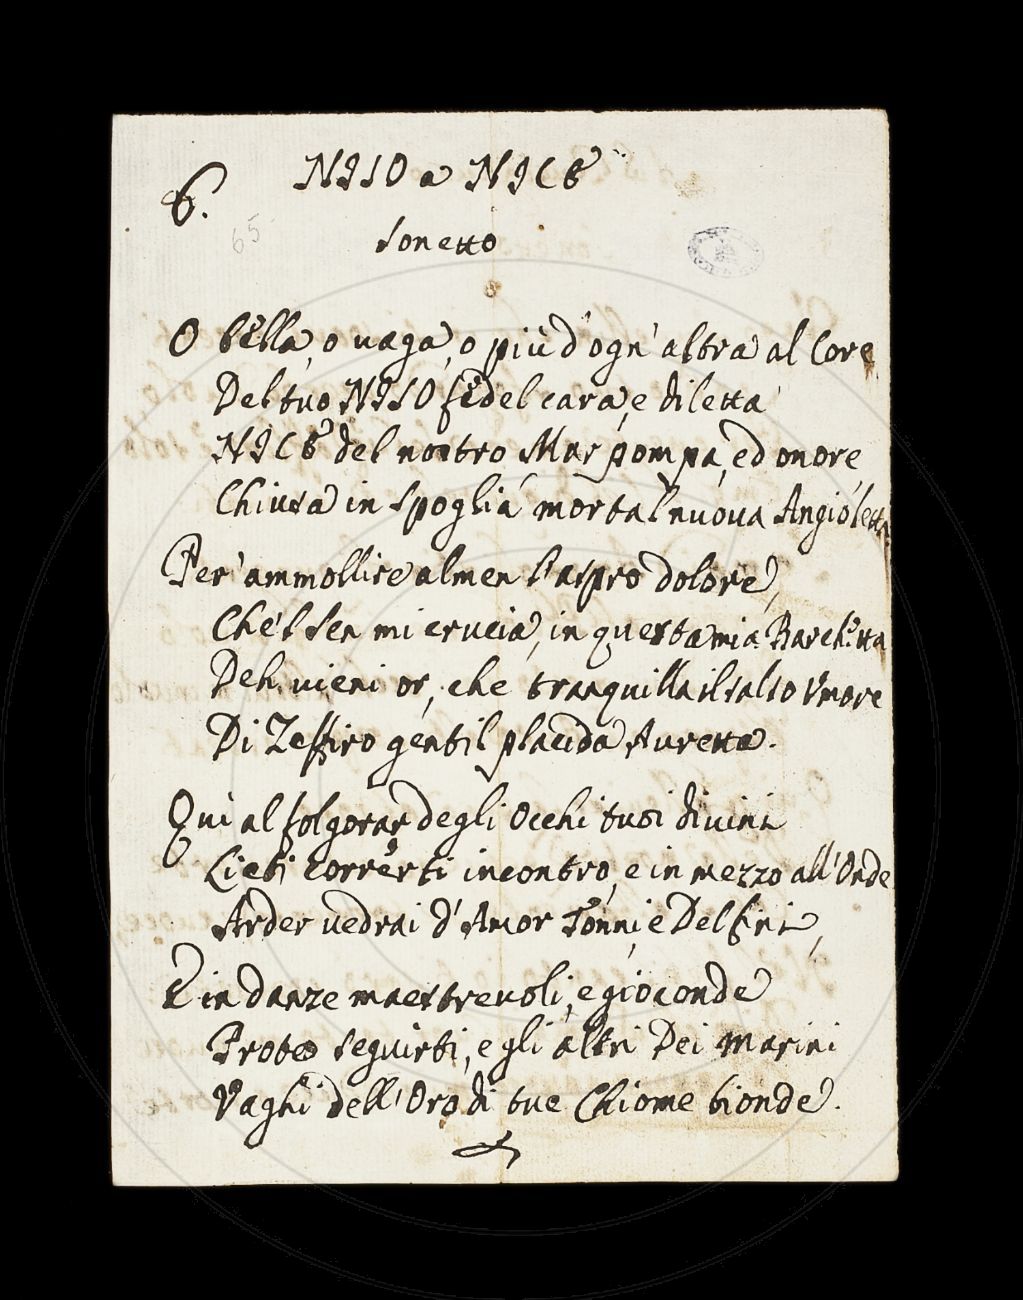 6.
NISO a NICE
65
Sonetto
O bella, o vaga, o più d'ogn'altra al Core
Del tuo NISO fedel cara, e diletta
NICE del nostro Mar pompa, ed onore
Chiusa in spoglia mortal nuova Angioletta
Per ammollire almen l'aspro dolore,
Che'l sen mi crucia, in questa mia Barch:tta
Deh vieni or, che tranquilla il salso Vmore
Di Zeffiro gentil placida Auretta.
Qui al folgorar degli Occhi tuoi divini
Lieti correrti incontro, e in mezzo all'Onde
Arder vedrai d'Amor Tonni, e Delfini,
E in danze maestrevoli, e gioconde
Proteo seguirti, e gli altri Dei marini
Vaghi dell'Oro di tue Chiome bionde.